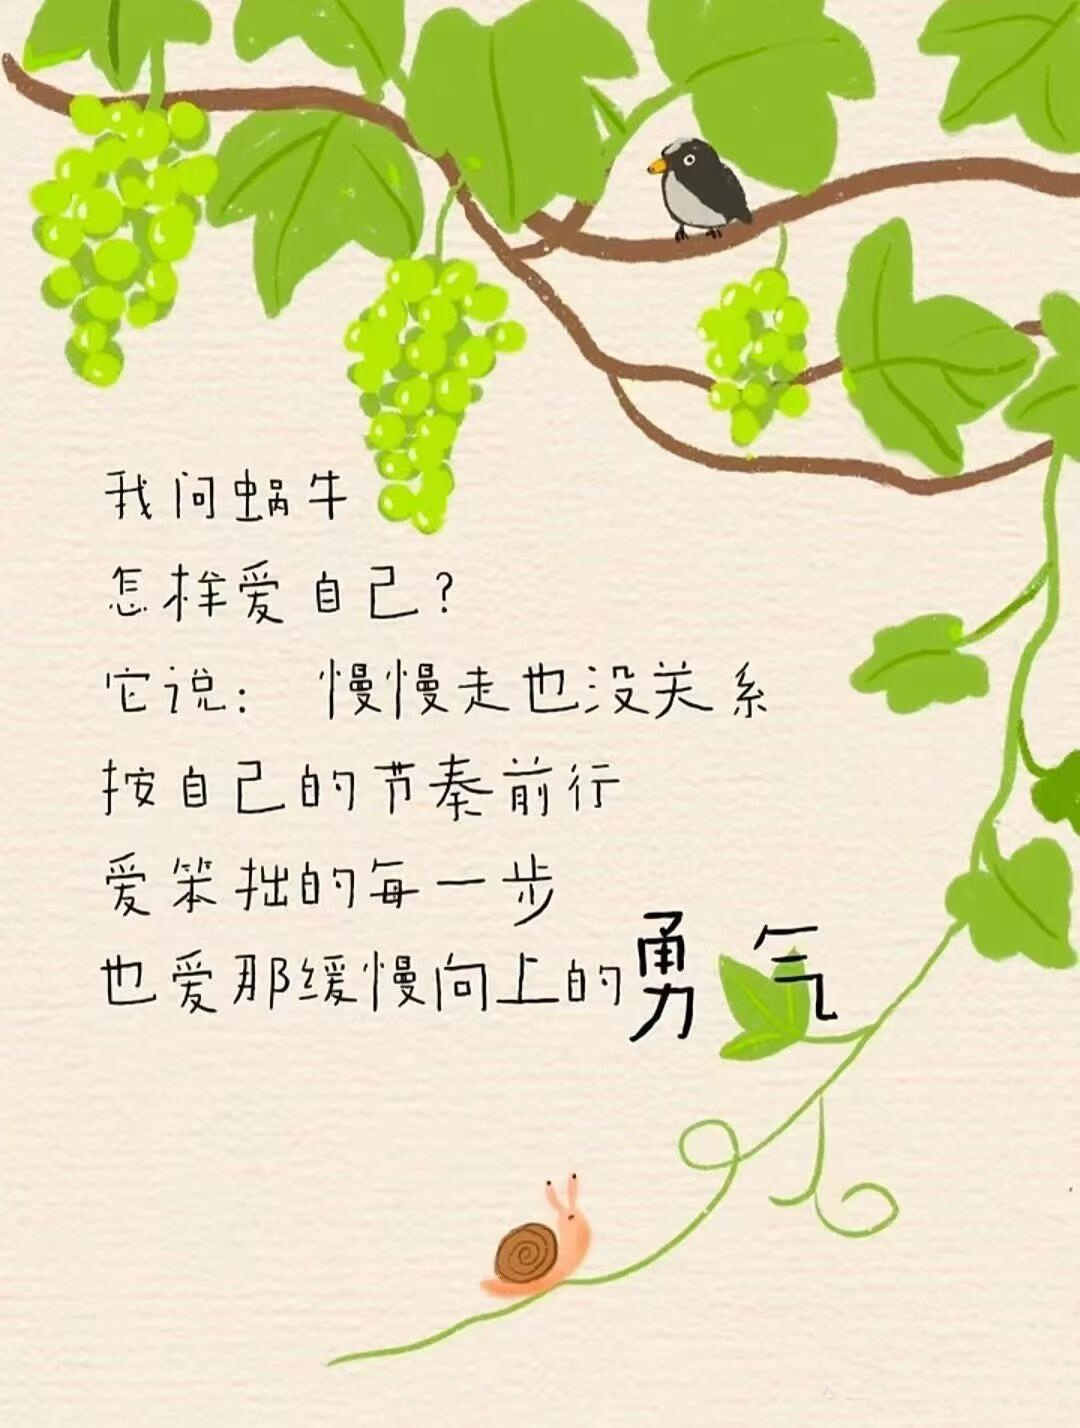 我问蜗牛
怎样爱自己?
它说: 慢慢走也没关系
按自己的节奏前行
爱笨拙的每一步
也爱那缓慢向上的勇气